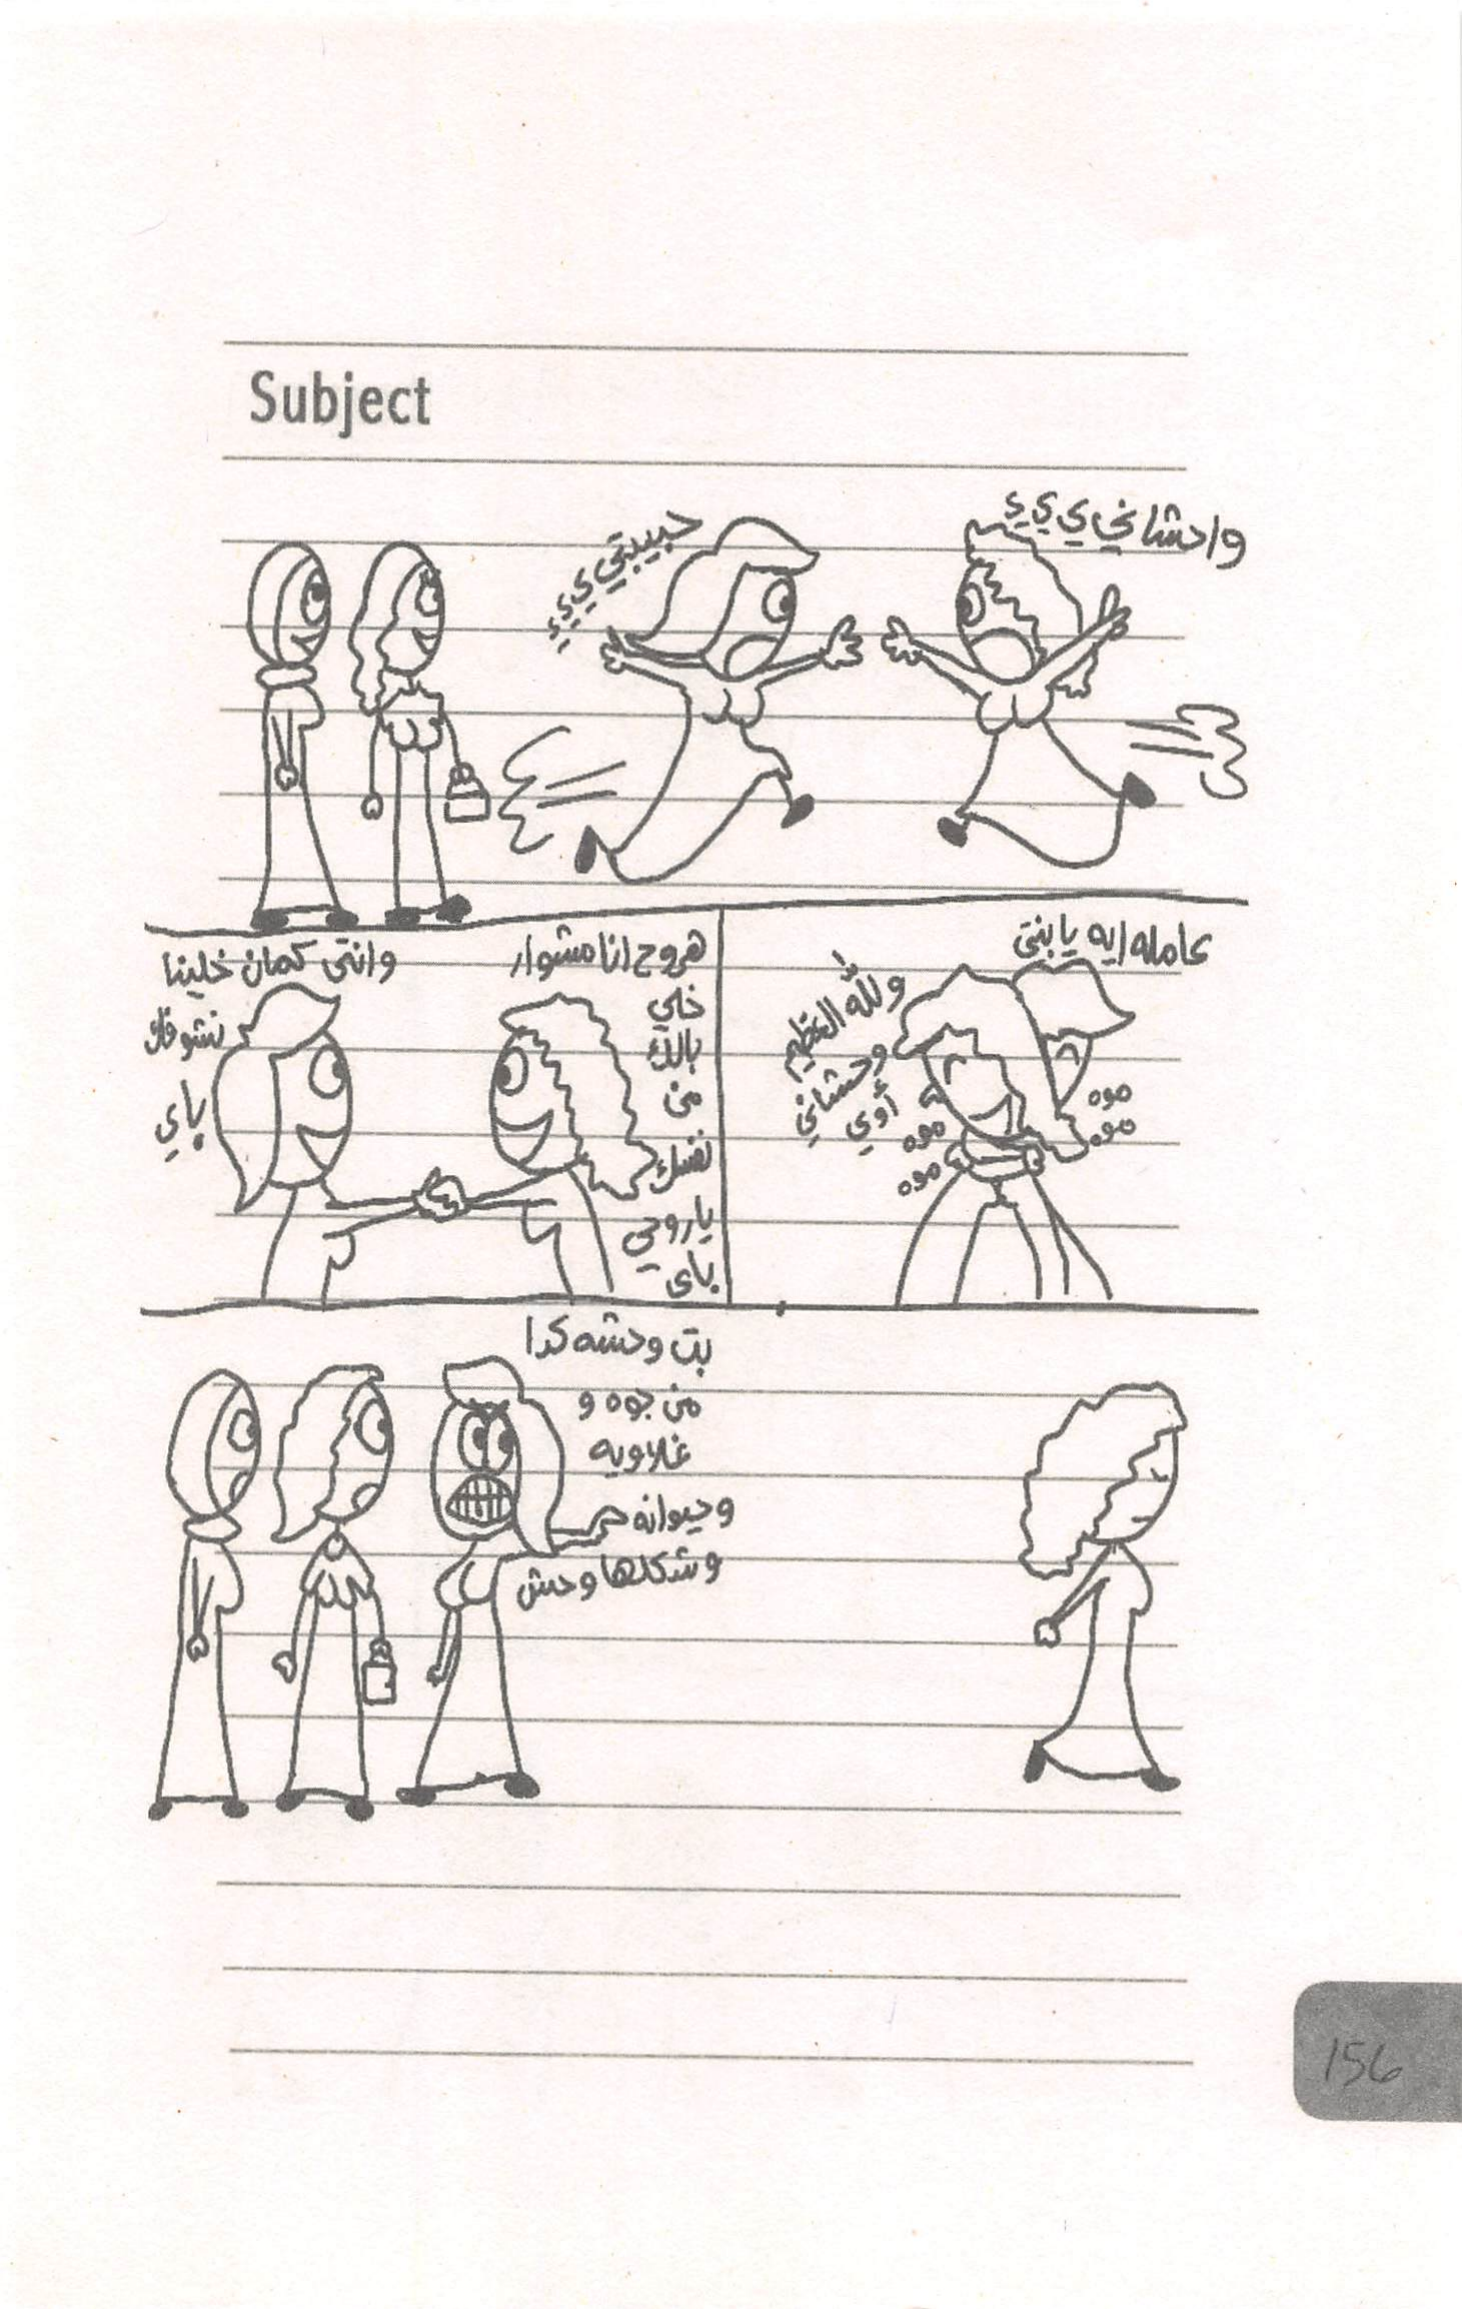 Subject
واحشاني ي ي ي
حبيبتي ي ي ي
عامله ايه يا بنتي
وللّه العظيم
وحشاني
أوي
موه
موه
موه
موه
هروح انا مشوار
خلي
بالك
من
نفسك
يا روحي
باى
وانتى كمان خلينا
نشوفك
باي
بت وحشه كدا
من جوه و
غلاويه
وحيوانه
وشكلها وحش
156